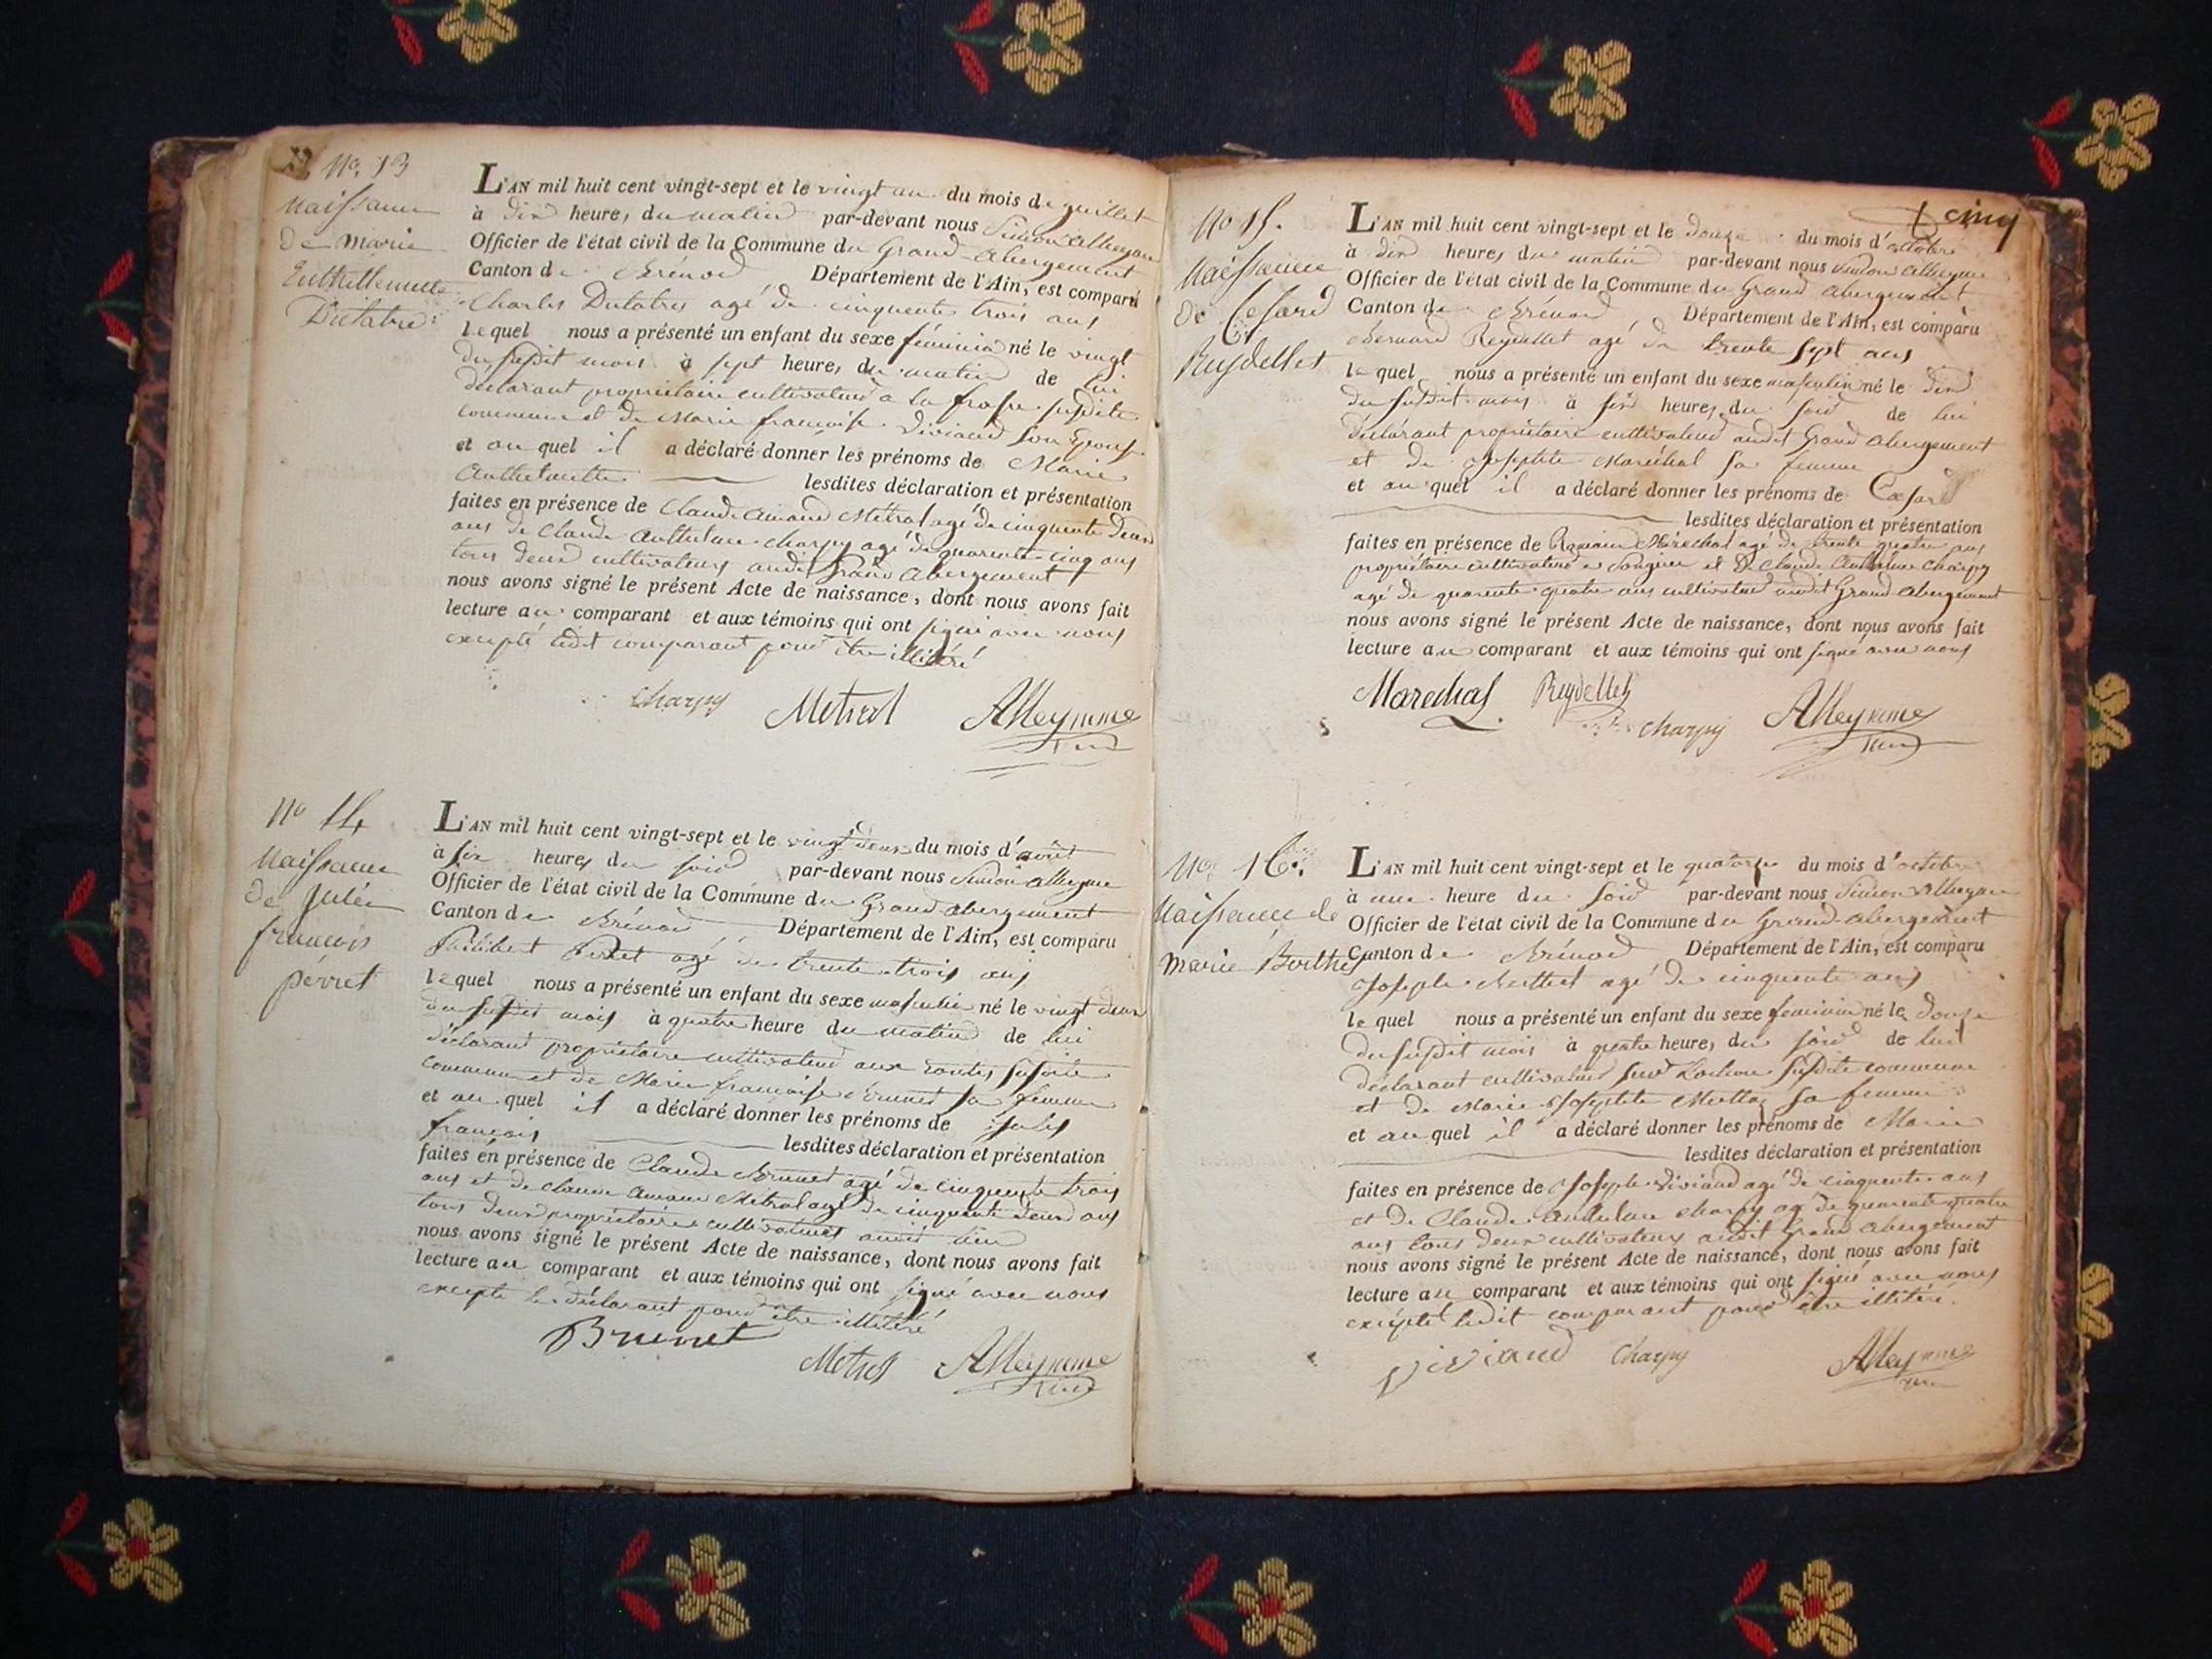 No. 13
Naissance
de marie
Dutatre
L'AN mil huit cent vingt-sept et le vingt un du mois de juillet
à dix heures du matin par-devant nous Simon Alleyme
Officier de l'état civil de la Commune du Grand abergement
Canton de Brénod Département de l'Ain, est comparu
Charles Dutatre agé de cinquente trois ans
lequel nous a présenté un enfant du sexe féminin né le vingt
du susdit mois à sept heures du matin de lui
déclarant propriétaire cultivateur à la susdite
commune et de Marie françoise Viviand son Epouse
et au quel il a déclaré donner les prénoms de Marie
Anthelmette lesdites déclaration et présentation
faites en présence de Claude Amand Métral agé de cinquente deux
ans de Claude Anthelme Charpy agé de quarente cinq ans
tous deux cultivateurs audit Grand abergement
nous avons signé le présent Acte de naissance, dont nous avons fait
lecture au comparant et aux témoins qui ont signé avec nous
excepté ledit comparant pour être illitéré
Charpy Metral Alleymme
No 14
Naissance
de Jules
françois
perret
L'AN mil huit cent vingt-sept et le vingt deux du mois d'août
à six heures du soir par-devant nous Simon Alleyme
Officier de l'état civil de la Commune du Grand abergement
Canton de Brénod Département de l'Ain, est comparu
Philibert Perret agé de trente trois ans
lequel nous a présenté un enfant du sexe masculin né le vingt deux
du susdit mois à quatre heure du matin de lui
déclarant propriétaire cultivateur aux susdite
commune et de Marie françoise Brunet sa femme
et au quel il a déclaré donner les prénoms de Jules
françois lesdites déclaration et présentation
faites en présence de Claude Brunet agé de cinquente trois
ans et de Claude Amand Métral agé de cinquente deux ans
tous deux propriétaires cultivateurs audit lieu
nous avons signé le présent Acte de naissance, dont nous avons fait
lecture au comparant et aux témoins qui ont signé avec nous
excepté le déclarant pour être illitéré
Brunet
Metral Alleymme
cinq
No 15.
Naissance
de Cesard
Reydellet
L'AN mil huit cent vingt-sept et le douze du mois d'octobre
à dix heures du matin par-devant nous Simon Alleyme
Officier de l'état civil de la Commune du Grand abergement
Canton de Brénod Département de l'Ain, est comparu
Bernard Reydellet agé de trente sept ans
lequel nous a présenté un enfant du sexe masculin né le dix
du susdit mois à six heures du soir de lui
déclarant propriétaire cultivateur audit Grand abergement
et de Josephte Maréchal sa femme
et au quel il a déclaré donner les prénoms de Cæsar
lesdites déclaration et présentation
faites en présence de Romain Maréchal agé de trente quatre ans
propriétaire cultivateur à Songieu et de Claude Anthelme Charpy
agé de quarente quatre ans cultivateur audit Grand abergement
nous avons signé le présent Acte de naissance, dont nous avons fait
lecture au comparant et aux témoins qui ont signé avec nous
Marechal Reydellet
Charpy Alleymme
No. 16.
Naissance de
marie Berthet
L'AN mil huit cent vingt-sept et le quatorze du mois d'octobre
à une heure du soir par-devant nous Simon Alleyme
Officier de l'état civil de la Commune du Grand abergement
Canton de Brénod Département de l'Ain, est comparu
Joseph Berthet agé de cinquente ans
lequel nous a présenté un enfant du sexe feminin né le douze
du susdit mois à quatre heures du soir de lui
déclarant cultivateur susdite commune
et de Marie Josephte sa femme
et au quel il a déclaré donner les prénoms de Marie
lesdites déclaration et présentation
faites en présence de Joseph Viviand agé de cinquente ans
et de Claude Anthelme Charpy agé de quarente quatre
ans tous deux cultivateurs audit Grand abergement
nous avons signé le présent Acte de naissance, dont nous avons fait
lecture au comparant et aux témoins qui ont signé avec nous
excépté ledit comparant pour être illitéré.
viviand Charpy Alleymme